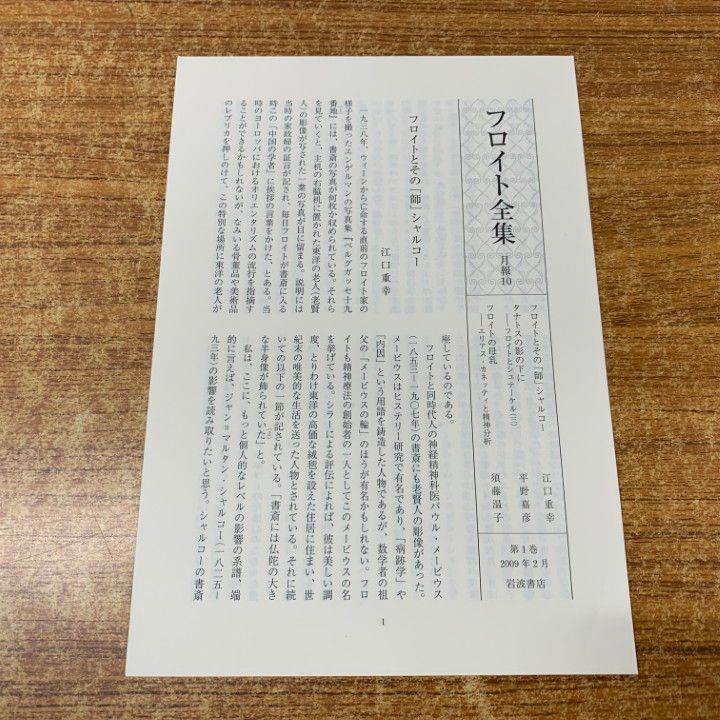 フロイト全集
月報10
フロイトとその「師」シャルコー
江口重幸
タナトスの影の下に
――フロイトとシュテーケル(三)
平野嘉彦
フロイトの母乳
――エリアス・カネッティと精神分析
須藤温子
第1巻
2009年2月
岩波書店
フロイトとその「師」シャルコー
江口重幸
一九三八年、ウィーンから亡命する直前のフロイト家の
様子を撮ったエンゲルマンの写真集『ベルグガッセ十九
番地』には、書斎の写真が何枚か収められている。それら
を見ていくと、主机の右脇机に置かれた東洋の老人(老賢
人)の彫像が写された一葉の写真が目に留まる。説明には
当時の家政婦の証言が記され、毎日フロイトが書斎に入る
時この「中国の学者」に挨拶の言葉をかけた、とある。当
時のヨーロッパにおけるオリエンタリズムの流行を指摘す
ることができるかもしれないが、なみいる骨董品や美術品
のレプリカを押しのけて、この特別な場所に東洋の老人が
座しているのである。
フロイトと同時代人の神経精神科医パウル・メービウス
(一八五三―一九〇七年)の書斎にも老賢人の彫像があった。
メービウスはヒステリー研究で有名であり、「病跡学」や
「内因」という用語を鋳造した人物であるが、数学者の祖
父の「メービウスの輪」のほうが有名かもしれない。フロ
イトも精神療法の創始者の一人としてこのメービウスの名
を挙げている。シラーによる評伝によれば、彼は美しい調
度、とりわけ東洋の高価な絨毯を設えた住居に住まい、世
紀末の唯美的な生活を送った人物とされている。それに続
いての以下の一節が記されている。「書斎には仏陀の大き
な半身像が飾られていた」と。
私は、ここに、もっと個人的なレベルの影響の系譜、端
的に言えば、ジャン=マルタン・シャルコー(一八二五―
九三年)の影響を読み取りたいと思う。シャルコーの書斎
1